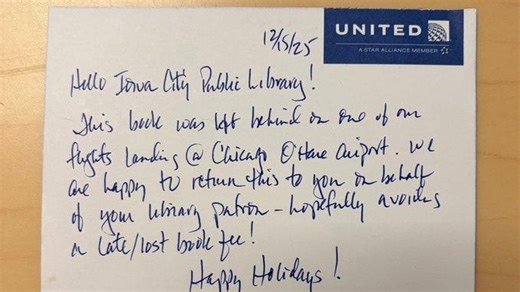 UNITED
A STAR ALLIANCE MEMBER
12/15/25
Hello Iowa City Public Library!
This book was left behind on one of our
flights landing @ Chicago O'Hare airport. We
are happy to return this to you on behalf
of your library patron - hopefully avoiding
a late/lost book fee!
Happy Holidays!